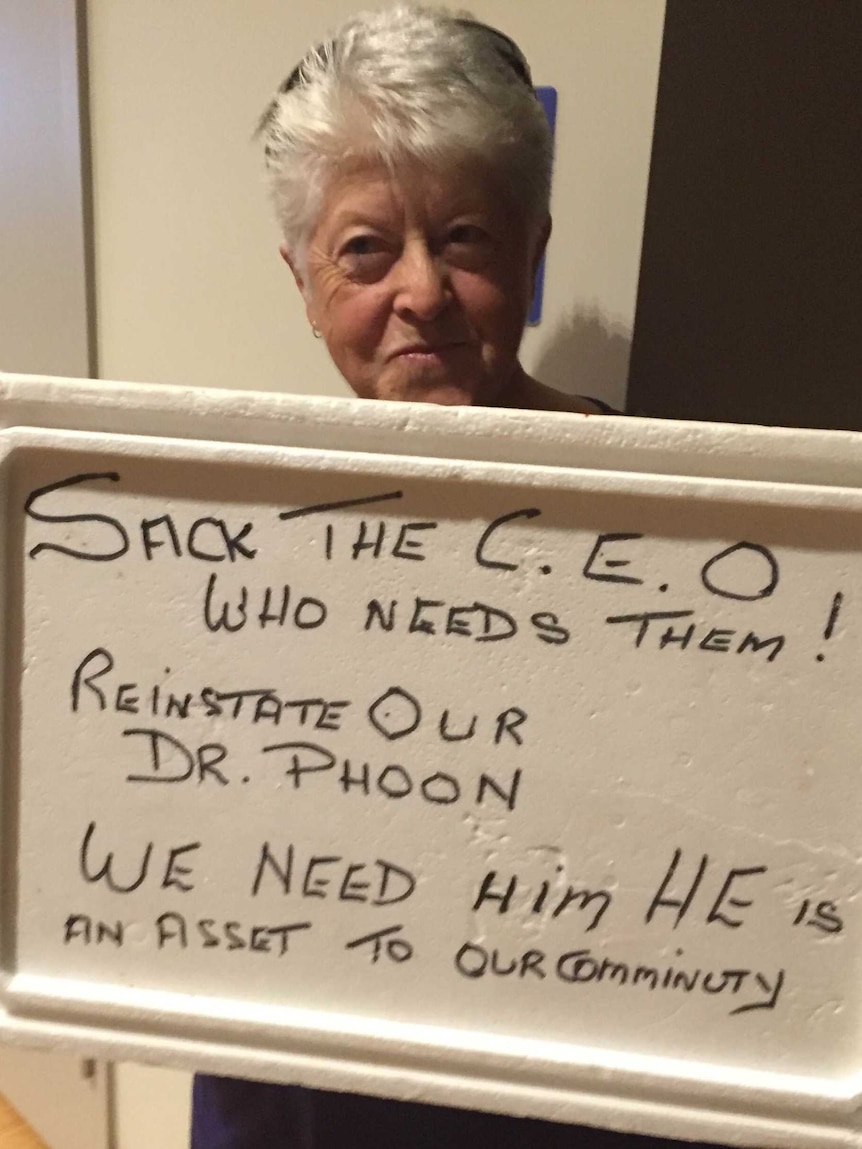 SACK THE C.E.O
WHO NEEDS THEM!
REINSTATE OUR
DR. PHOON
WE NEED HIM HE IS
AN ASSET TO OUR COMMINUTY